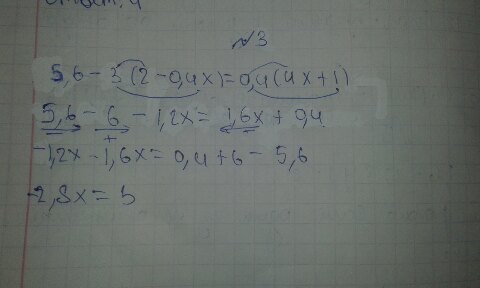 Ответ: 4
№3
5,6 - 3(2 - 0,4x) = 0,4(4x + 1)
5,6 - 6 - 1,2x = 1,6x + 0,4
-1,2x - 1,6x = 0,4 + 6 - 5,6
-2,8x =